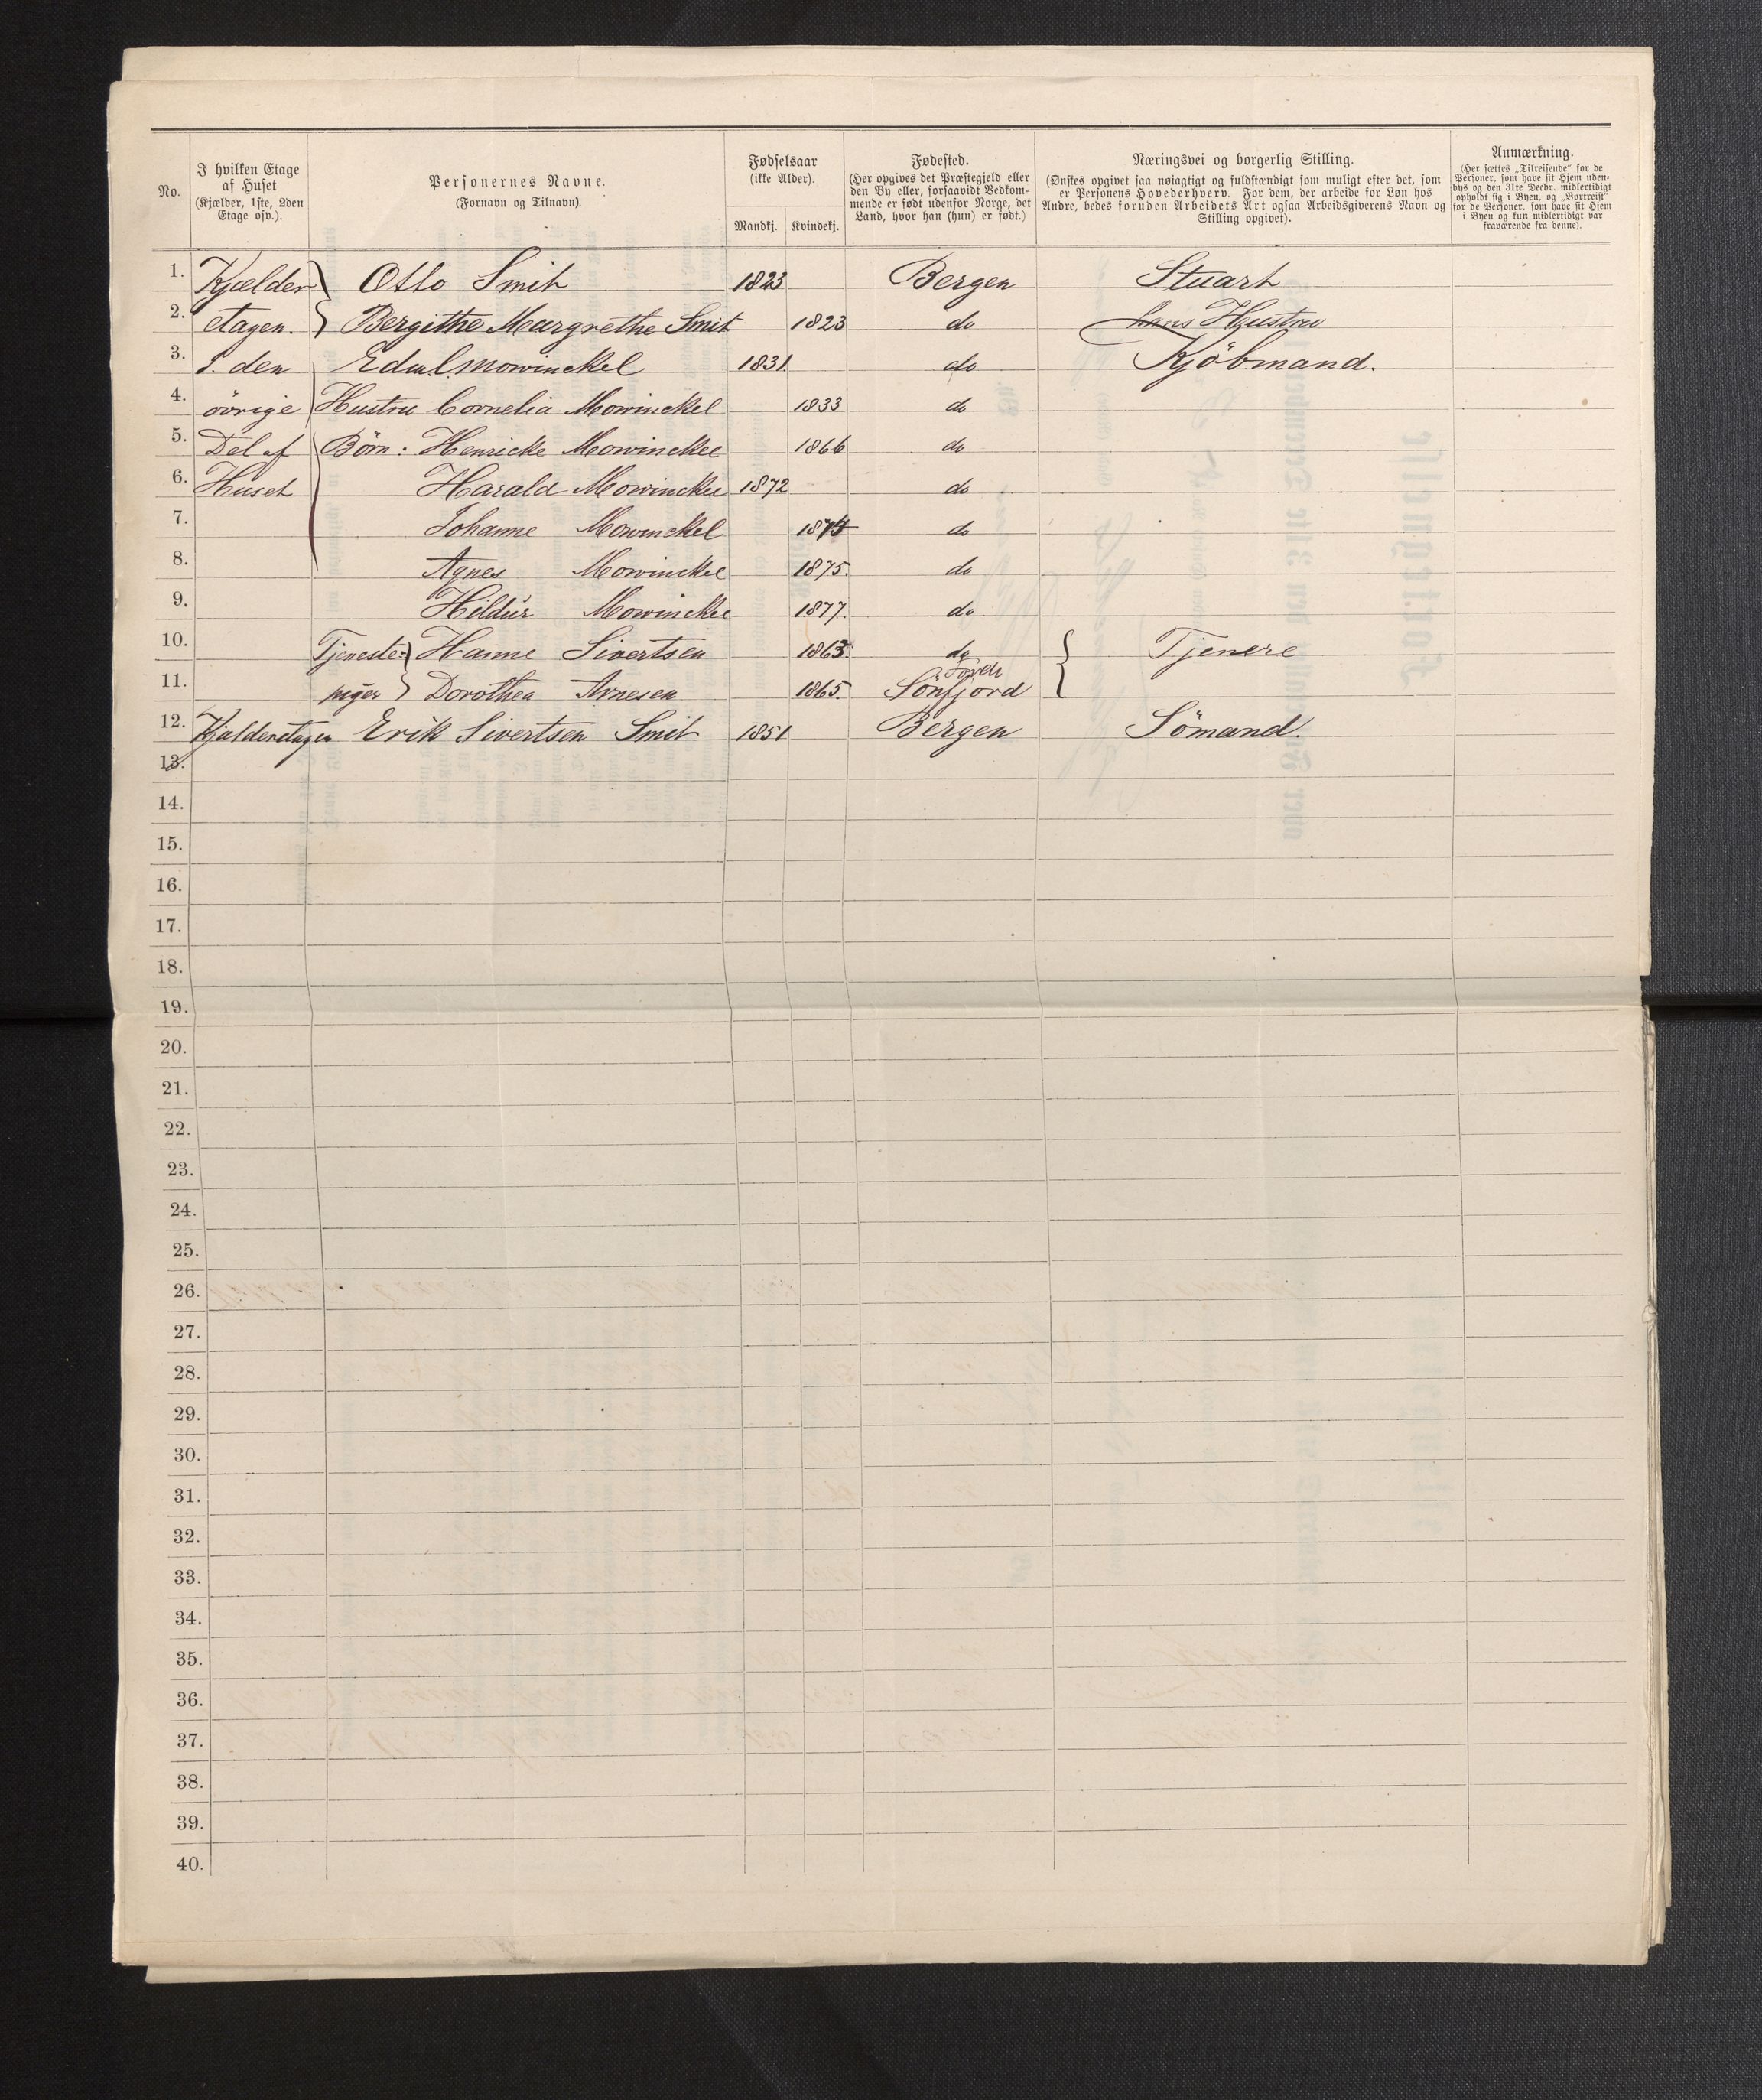 No.
I hvilken Etage af Huset (Kjælder, 1ste, 2den Etage osv.).
Personernes Navne. (Fornavn og Tilnavn).
Fødselsaar (ikke Alder).
Mandkj. Kvindekj.
Fødested. (Her opgives det Præstegjeld eller den By eller, forsaavidt Vedkommende er født udenfor Norge, det Land, hvor han (hun) er født.)
Næringsvei og borgerlig Stilling. (Ønskes opgivet saa nøiagtigt og fuldstændigt som muligt efter det, som er Personens Hovederhverv. For dem, der arbeide for Løn hos Andre, bedes foruden Arbeidets Art ogsaa Arbeidsgiverens Navn og Stilling opgivet).
Anmærkning. (Her sættes „Tilreisende" for de Personer, som have sit Hjem udenbys og den 31te Decbr. midlertidigt opholdt sig i Byen, og „Bortreist" for de Personer, som have sit Hjem i Byen og kun midlertidigt var fraværende fra denne).
1. Kjælder Otto Smit 1823 Bergen Stuart
2. etagen. Bergithe Margrethe Smit 1823 do hans Hustru
3. I den Edw. Mowinckel 1831 do Kjöbmand.
4. övrige Hustru Cornelia Mowinckel 1833 do
5. Del af Börn: Henricke Mowinckel 1866 do
6. Huset Harald Mowinckel 1872 do
7. Johanne Mowinckel 1874 do
8. Agnes Mowinckel 1875. do
9. Hildur Mowinckel 1877. do
10. Tjeneste- Hanne Sivertsen 1863. do Tjenere
11. piger Dorothea Arnesen 1865. Förde Sönfjord
12. Kjælderetagen Erik Sivertsen Smit 1851 Bergen Sömand.
13.
14.
15.
16.
17.
18.
19.
20.
21.
22.
23.
24.
25.
26.
27.
28.
29.
30.
31.
32.
33.
34.
35.
36.
37.
38.
39.
40.